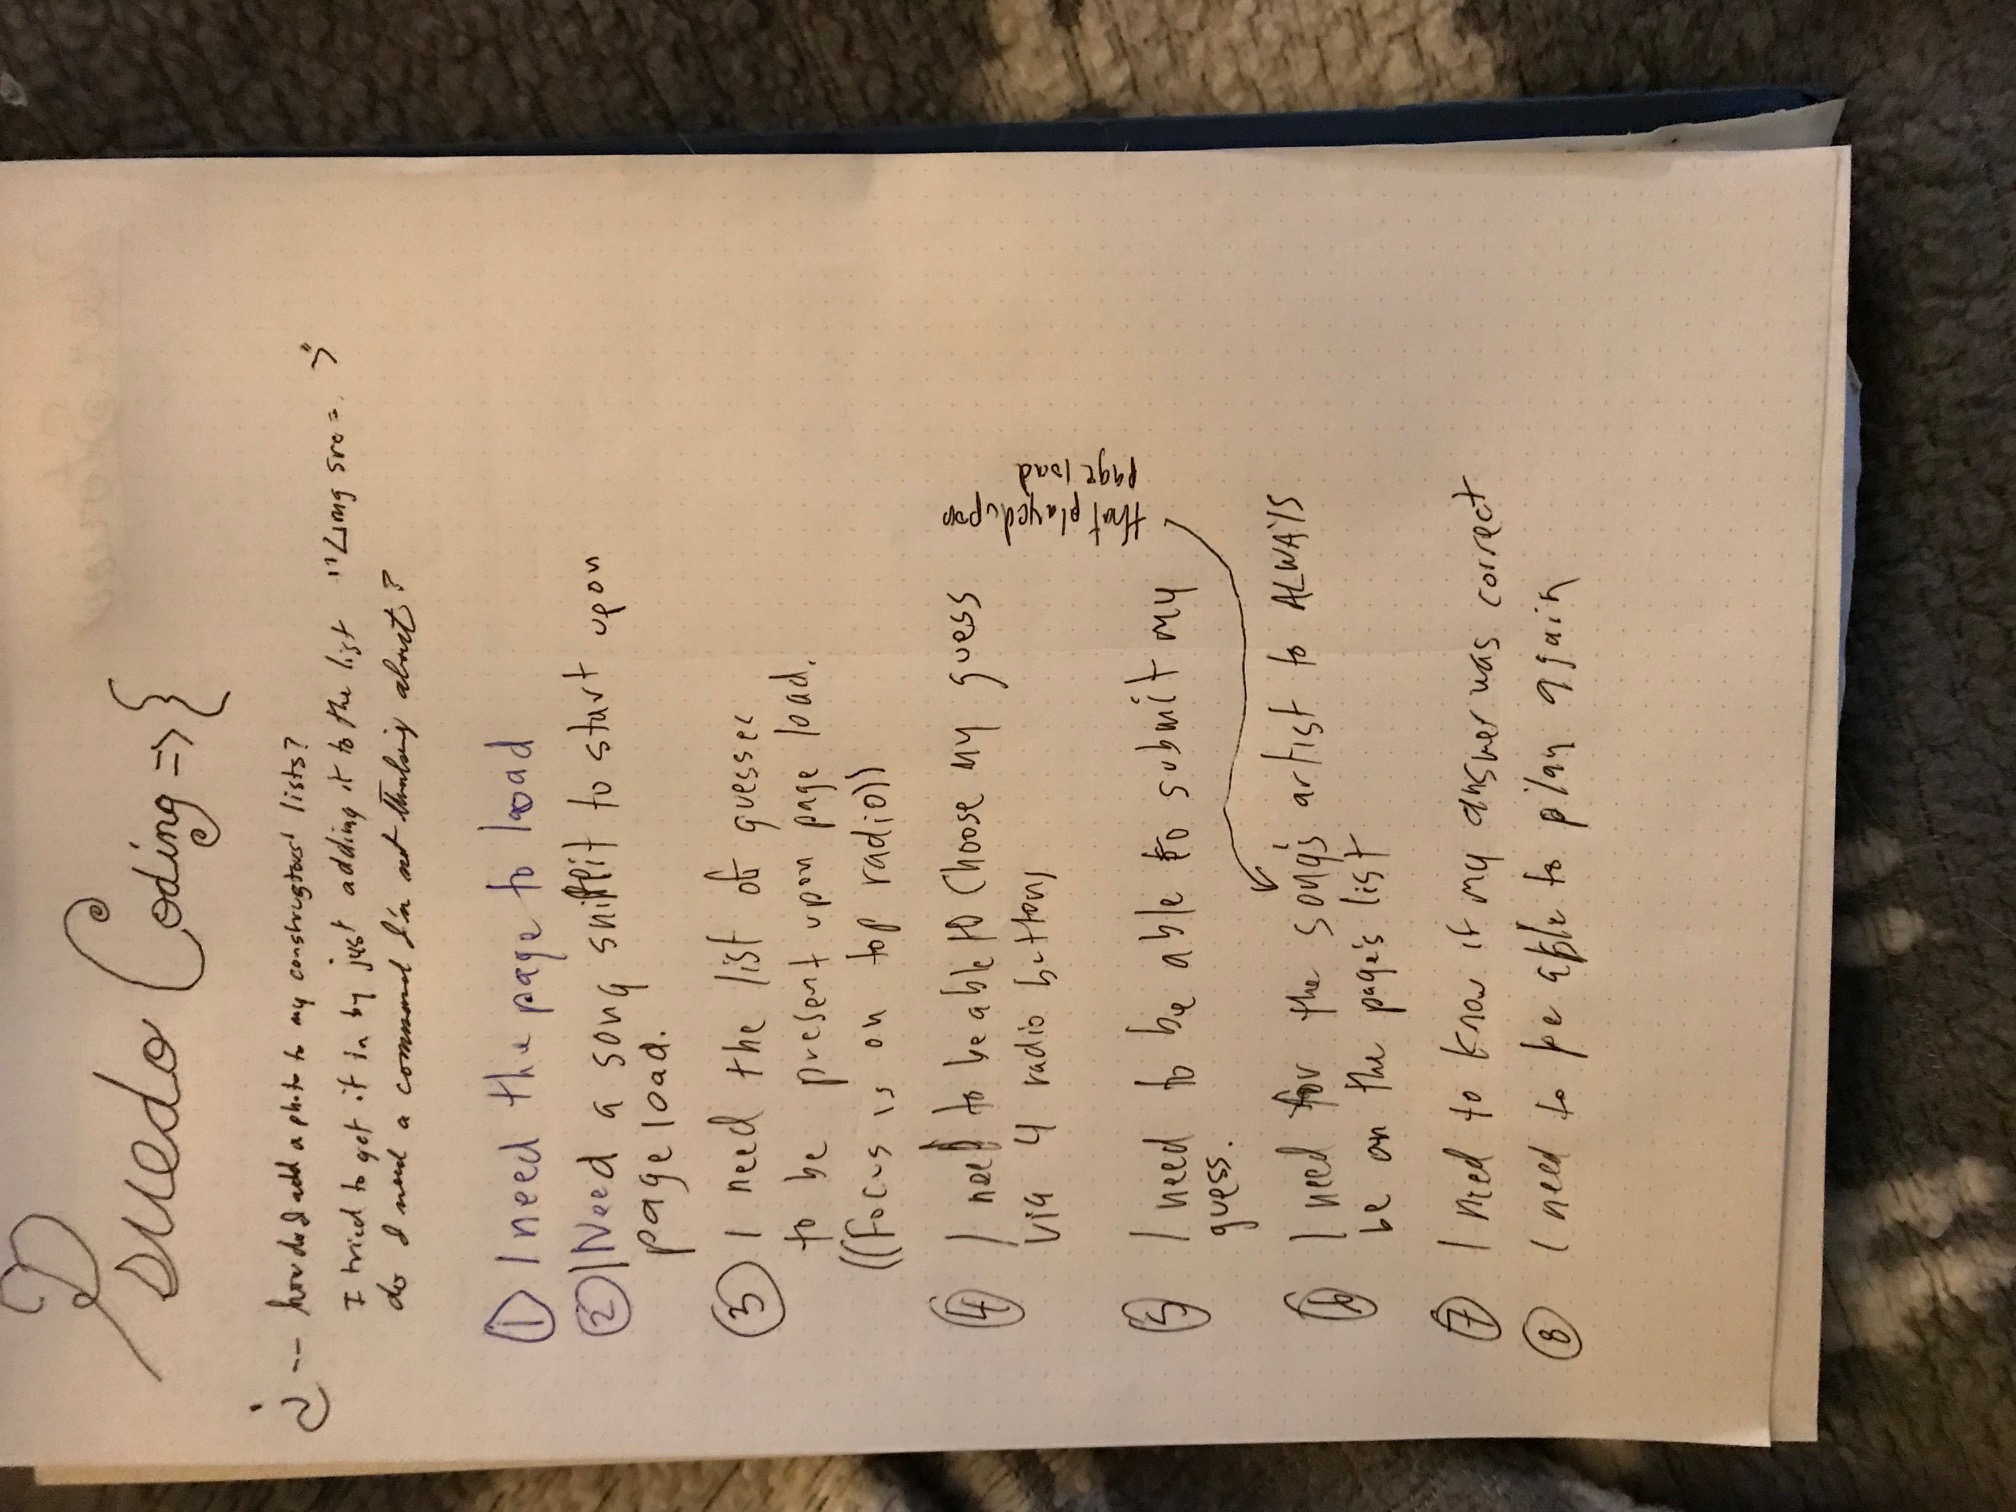 Psuedo Coding => {
¿ -- how do I add a photo to my constructors' lists?
I tried to get it in by just adding it to the list "<img src = >"
do I need a command I'm not thinking about?
① I need the page to load
② I Need a song snippit to start upon
page load.
③ I need the list of guesses
to be present upon page load.
((focus is on top radio))
④ I need to be able to choose my guess
via 4 radio buttons
⑤ I need to be able to submit my
guess.
that played upon
page load
⑥ I need for the song's artist to ALWAYS
be on the page's list
⑦ I need to know if my answer was correct
⑧ I need to be able to play again